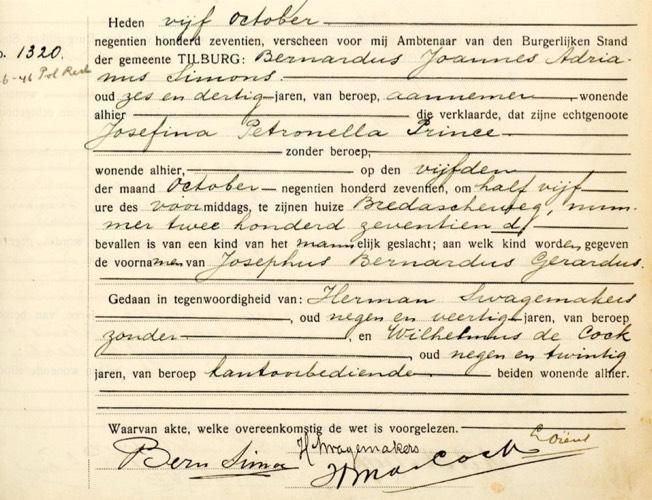 Heden vijf October
negentien honderd zeventien, verscheen voor mij Ambtenaar van den Burgerlijken Stand
o. 1320.
der gemeente TILBURG: Bernardus Joannes Adria-
6-46 Pol
nus Simons.
oud zes en dertig jaren, van beroep, aannemer wonende
alhier die verklaarde, dat zijne echtgenoote
Josefina Petronella Prince
zonder beroep,
wonende alhier, op den vijfden
der maand October negentien honderd zeventien, om half vijf
ure des voormiddags, te zijnen huize Bredascheweg, num-
mer twee honderd zeventien d,
bevallen is van een kind van het mannelijk geslacht; aan welk kind worden gegeven
de voornamen van Josephus Bernardus Gerardus.
Gedaan in tegenwoordigheid van: Herman Swagemakers
, oud negen en veertig jaren, van beroep
zonder , en Wilhelmus de Cock
, oud negen en twintig
jaren, van beroep kantoorbediende beiden wonende alhier.
Waarvan akte, welke overeenkomstig de wet is voorgelezen.
Bern Simons H Swagemakers